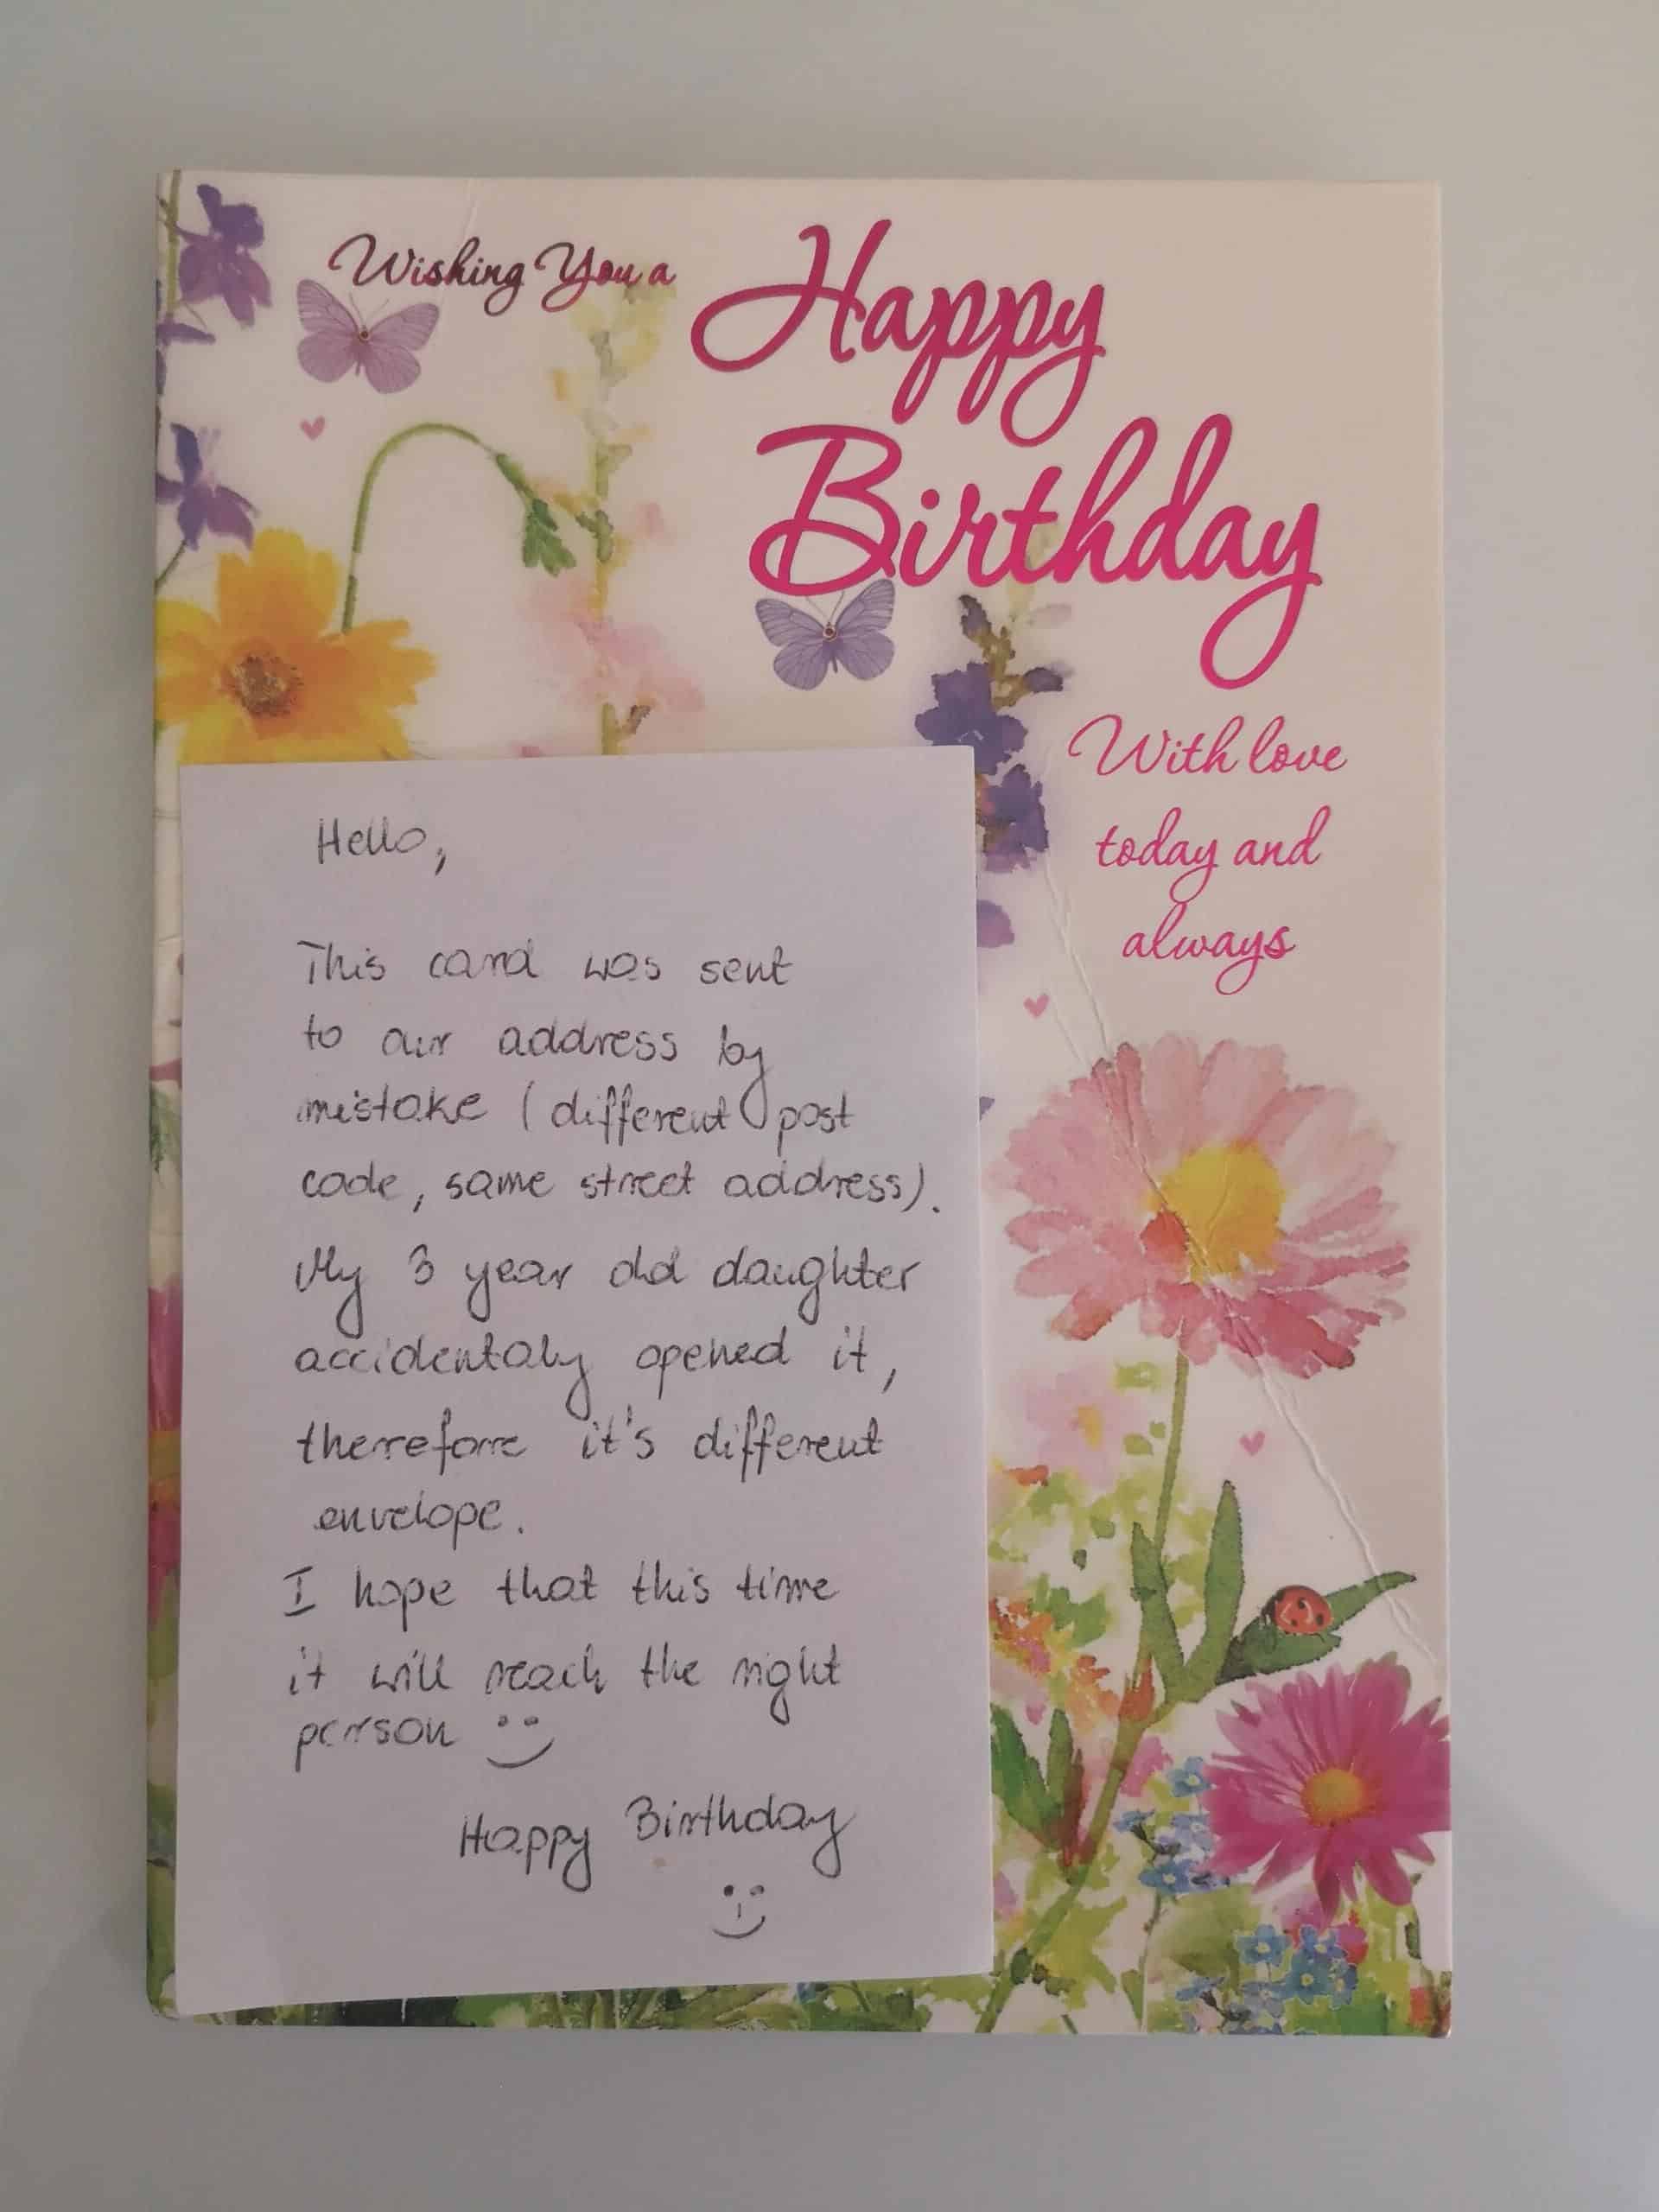 Wishing You a
Happy
Birthday
With love
today and
always
Hello,
This card was sent
to our address by
mistake (different post
code, same street address).
My 3 year old daughter
accidentaly opened it,
therefore it's different
envelope.
I hope that this time
it will reach the right
person
Happy Birthday